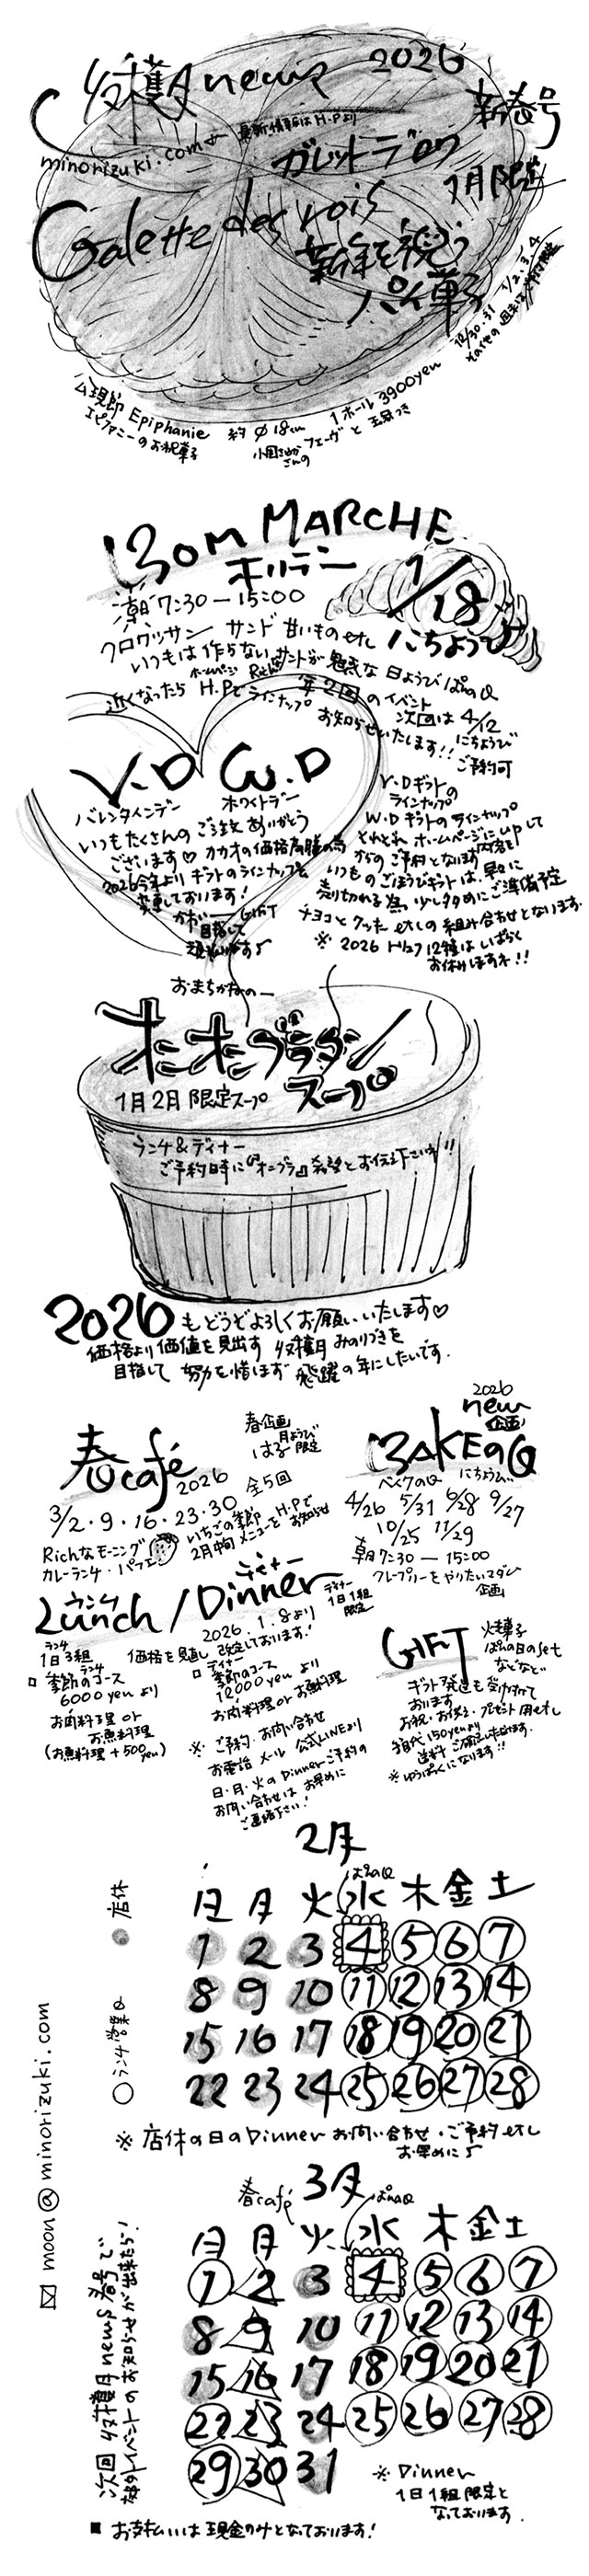 収穫月news 2026
新春号
minorizuki.com 最新情報はH.Pより
ガレットデロワ
1月限定
Galette des rois
新年を祝う
パイ菓子
12/30.31 1/2.3.4
公現節 Epiphanie
エピファニーのお祝菓子
約φ18cm
1ホール3900yen
フェーヴと王冠つき
BOM MARCHE
ボンマルシェ
1/18
にちようび
朝7:30―15:00
クロワッサン サンド 甘いものetc
いつもは作らないRichサンドが魅惑な日ようびぱんの日
年2回のイベント
近くなったらホームページ H.Pでラインナップ
お知らせいたします!!
次回は4/12
にちようび
ご予約可
V.D W.D
バレンタインデー ホワイトデー
いつもたくさんのご注文ありがとう
ございます♡ カカオの価格高騰の為
2026今年よりギフトのラインナップを
変更しております!
GIFT
目指して
V.Dギフトの
ラインナップ
W.Dギフトのラインナップ
それぞれホームページにupして
からのご予約となります
いつものごほうびギフトは、早々に
売り切れる為 少し多めにご準備予定
チョコとクッキーetcの組み合わせとなります。
※2026トリュフ12種はしばらく
お休みしますネ!!
おまちかねの―
オニオングラタン
スープ
1月2月限定スープ
ランチ&ディナー
ご予約時に『オニグラ』希望とお伝え下さいね!!
2026もどうぞよろしくお願いいたします♡
価格より価値を見出す 収穫月みのりづきを
目指して 努力を惜しまず 飛躍の年にしたいです.
春café
2026
春企画
月ようび
限定
全5回
3/2・9・16・23・30
Richなモーニング
カレーランチ・パフェ
いちごの季節
2月中旬メニューをH.Pで
お知らせ
2026
new
企画
BAKEの日
ベイクの日 にちようび
4/26 5/31 6/28 9/27
10/25 11/29
朝7:30―15:00
クレープリーをやりたいマダム
企画
ランチ ディナー
Lunch/Dinner
ディナー
1日1組
限定
2026.1.8より
価格を見直し改定しております!
ランチ
1日3組
□季節のコース
6000yenより
お肉料理or
お魚料理
(お魚料理+500yen)
□ディナー
季節のコース
12000yenより
お肉料理orお魚料理
※ご予約・お問い合せ
お電話 メール 公式LINEより
日・月・火のDinnerご予約の
お問い合わせはお早めに
ご連絡下さい!
GIFT
焼菓子
ぱんの日のset
などなど
ギフト発送も受け付けて
おります
お祝・お供え・プレゼント用etc
箱代150yenより
※ゆうぱっくになります!!
2月
ぱんの日
日 月 火 水 木 金 土
1 2 3 4 5 6 7
8 9 10 11 12 13 14
15 16 17 18 19 20 21
22 23 24 25 26 27 28
店休
○ランチ営業日
※店休の日のDinnerお問い合わせ・ご予約etc
お早めに
3月
春café
ぱんの日
日 月 火 水 木 金 土
1 2 3 4 5 6 7
8 9 10 11 12 13 14
15 16 17 18 19 20 21
22 23 24 25 26 27 28
29 30 31
※Dinner
1日1組限定と
なっております.
moon@minorizuki.com
次回収穫月news春号で
イベントのお知らせが出来たら!
■お支払いは現金のみとなっております!